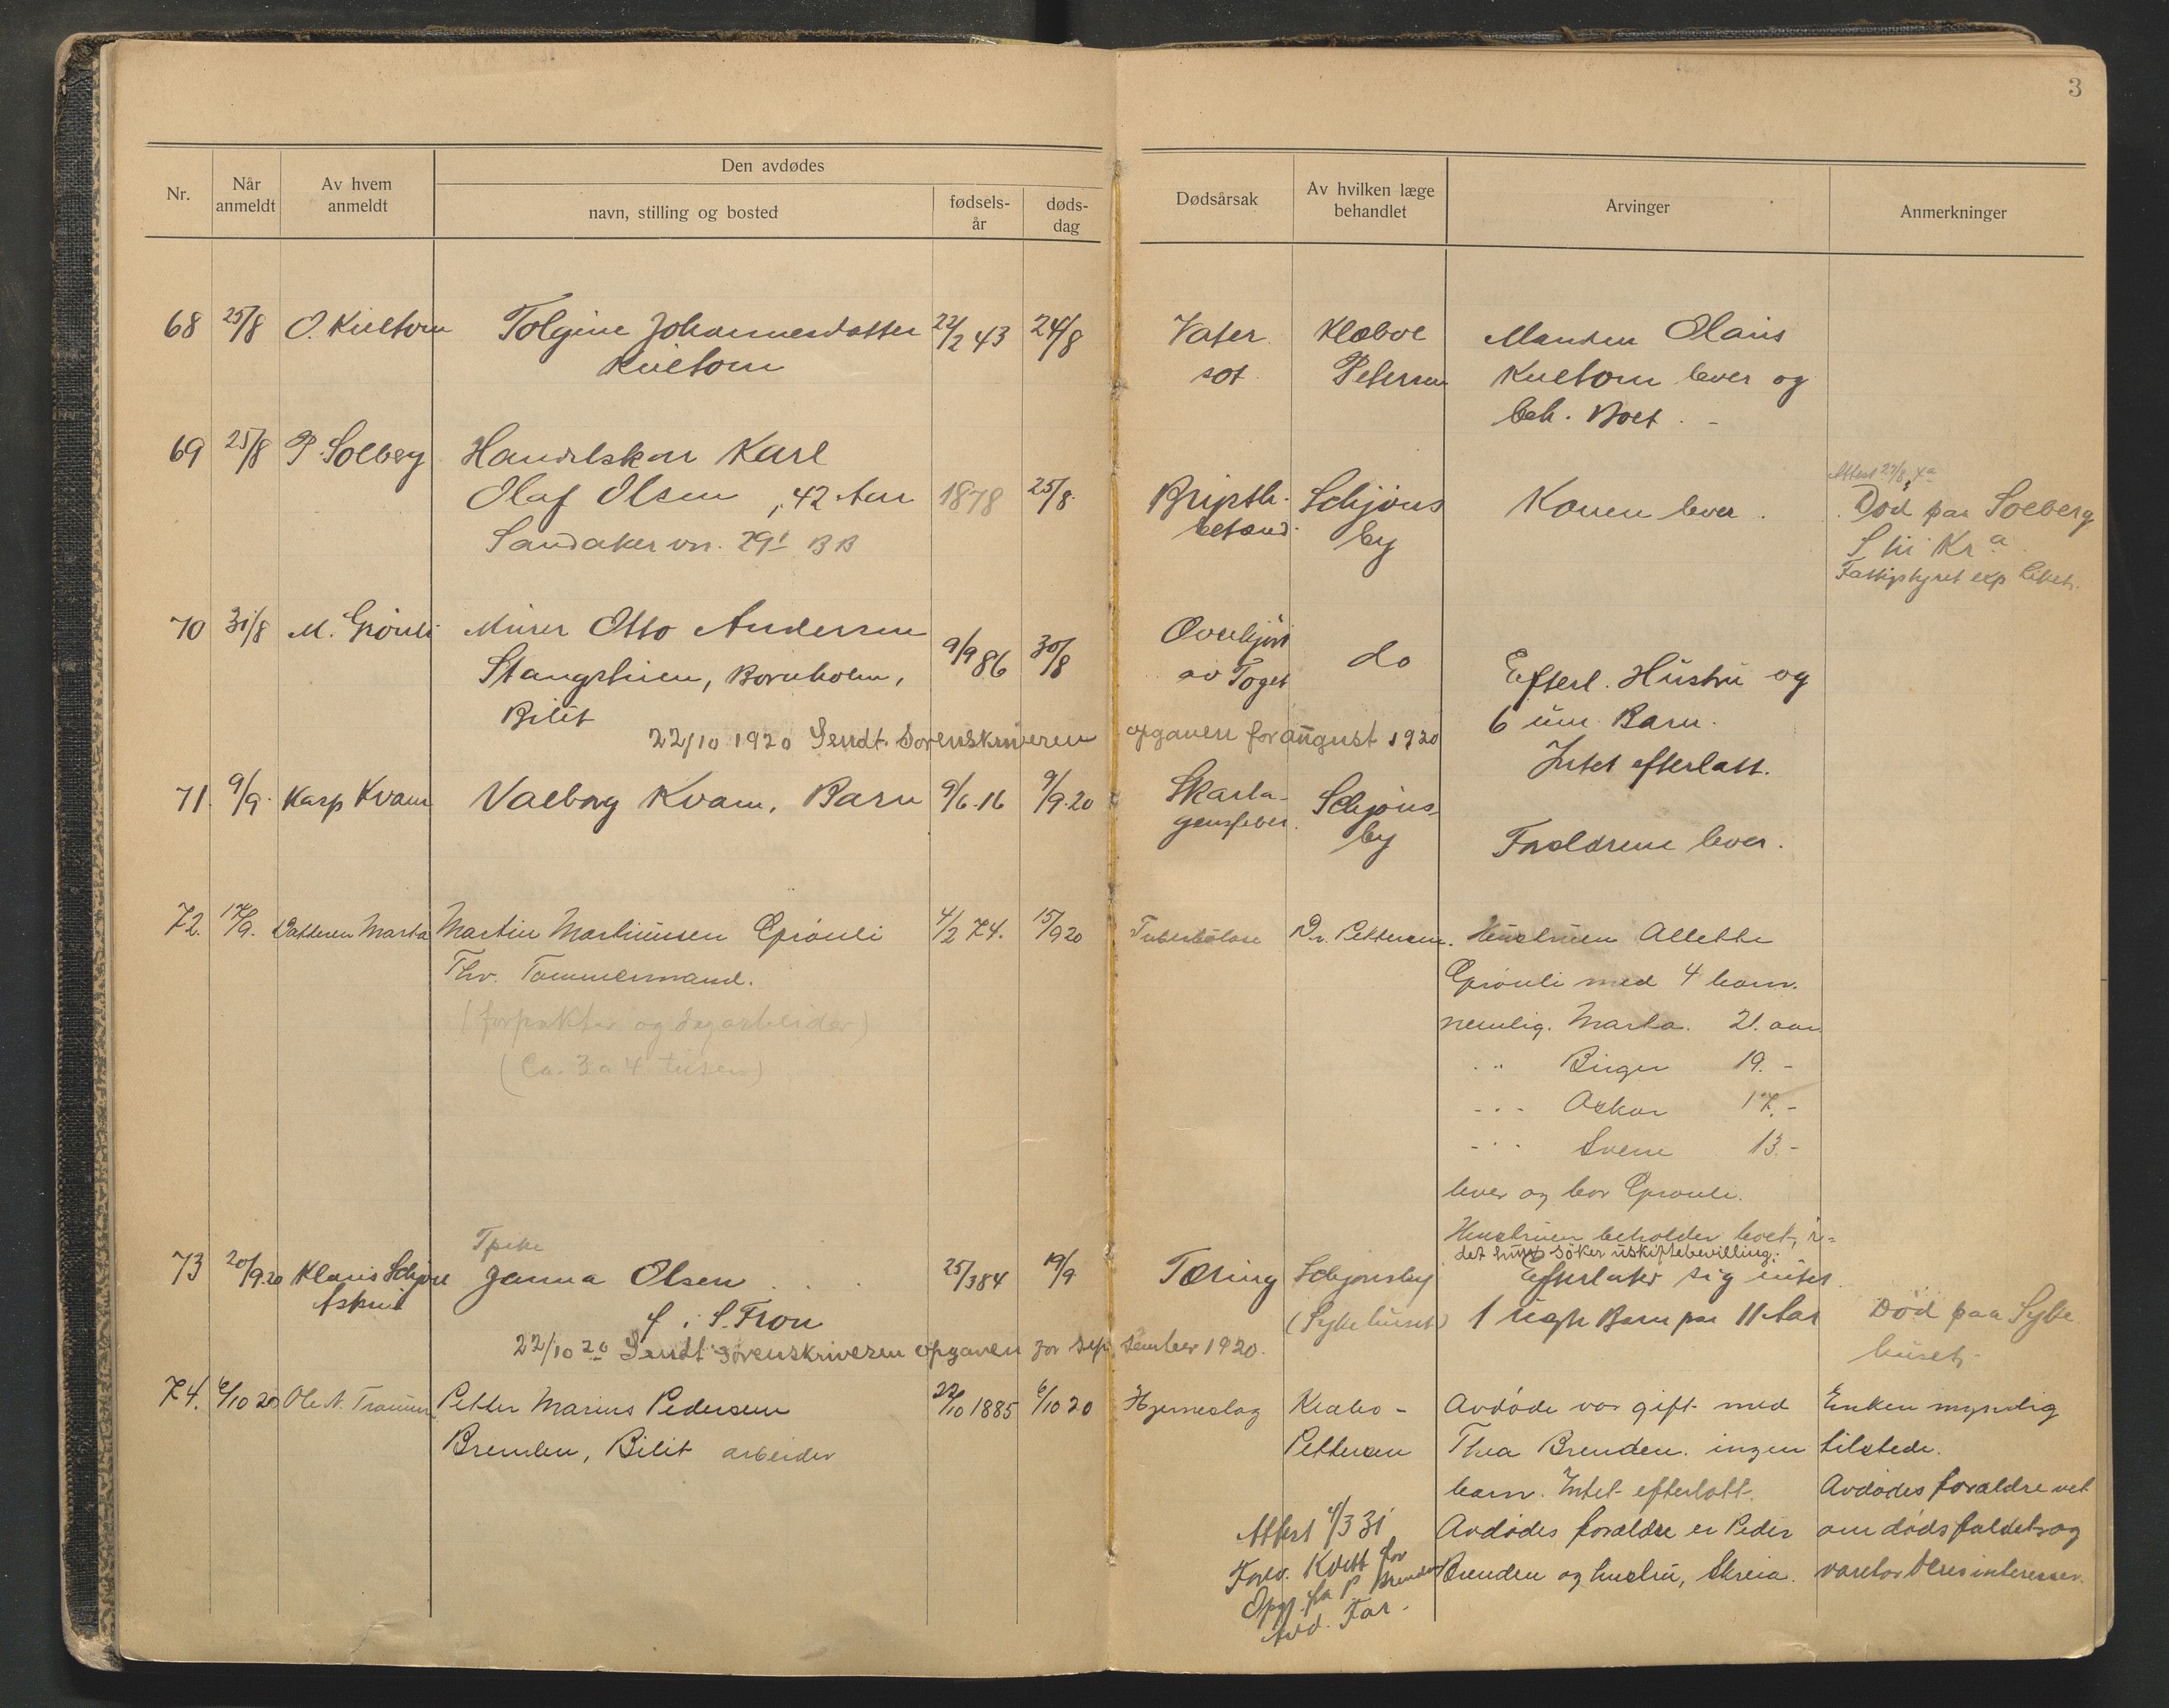 3
Nr.
Når anmeldt
Av hvem anmeldt
Den avdødes
navn, stilling og bosted
fødsels-år
døds-dag
Dødsårsak
Av hvilken læge behandlet
Arvinger
Anmerkninger
68 25/8 O. Kvelton Tolgine Johannesdatter 22/2 43 24/8 Vater Klæboe Manden Olaus
Kvelton sot Petersen Kvelton lever og
beh. Boet. -
69 25/8 P. Solberg Handelskar Karl
Attest 27/8
Olaf Olsen, 42 Aar 1878 25/8 Schjøns Konen lever. Død paa Solberg
Sandakervn. 29 betænd. by S til Kr a
Fattigstyret exp Liket.
70 31/8 M. Grønli Murer Otto Andersen 9/9 86 30/8 Overkjørt do
Stangstuen, Bornholm, av Toget Efterl. Hustru og
Bilit 6 um. Barn.
22/10 1920 Sendt Sorenskriveren opgaven for august 1920
Intet efterlatt.
71. 9/9. Kasp Kvam Valborg Kvam, Barn 9/6.16 9/9.20 Skarla- Schjøns
gensfeber. by Forældrene lever.
72. 17/9. Datteren Marta Martin Martinusen Grønli 4/2 74. 15/9 20 Tuberkulose Dr. Pettersen. Hustruen Allette
Thv. Tømmermand. Grønli med 4 barn.
(forpakter og dagarbeider) nemlig. Marta. 21. aar
(Ca. 3 a 4 tusen) " Birger 19. -
- " - Oskar 17. -
- " - Sverre 13. -
lever og bor Grønli.
Hustruen beholder boet, i-
det hun søker uskiftebevilling.
Tpike
73 20/9 20 Klaus Schjøll Janna Olsen 25/3 84 19/9 Tæring Schjønsby Efterlater sig intet
f. i S. Fron (Sykehuset) 1 uegte Barn paa 11 Aar Død paa Syke
huset,
22/10 20 Sendt Sorenskriveren opgaven for september 1920.
74. 6/10 20 Ole N. Petter Marius Pedersen 22/10 1885 6/10 20 Hjerneslag Krabo- Avdøde var gift med Enken myndig
Brenden, Bilit arbeider Pettersen Thea Brenden. ingen tilstede.
barn. Intet efterlatt. Avdødes forældre vet
Attest 4/3 31 Avdødes forældre er Peder om dødsfaldet og
Forev. Kvitt for Brenden og hustru, Skreia. varetar deres interesser.
Opg. fra P Brenden
Avd. Far.